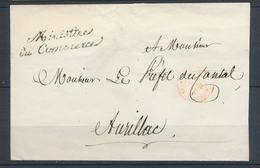 Ministère
du Commerce
A Monsieur
Monsieur Le Préfet du Cantal
Aurillac